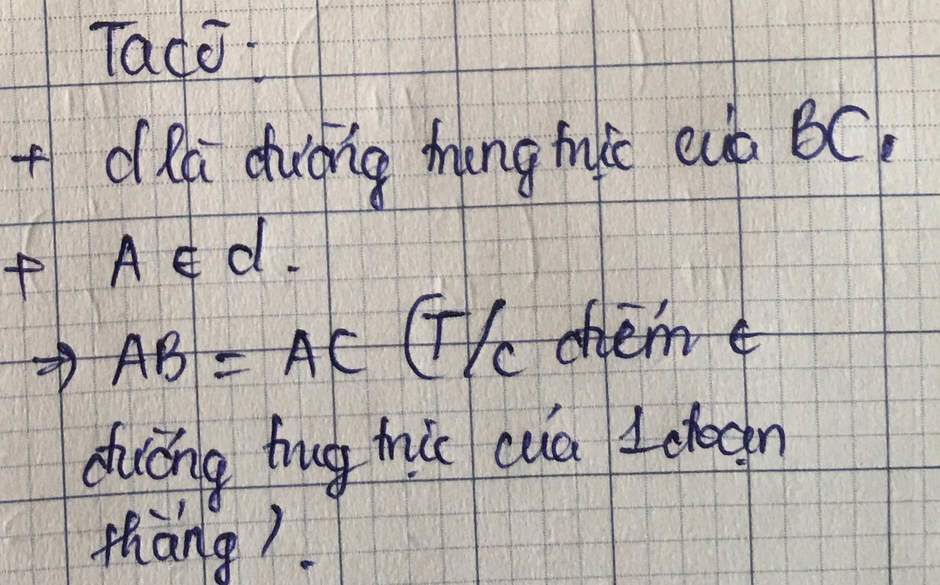 Ta có:
+ d là đường trung trực của BC.
+ A ∈ d.
→ AB = AC (T/c điểm ∈
đường trug trực của 1 đoạn
thẳng).